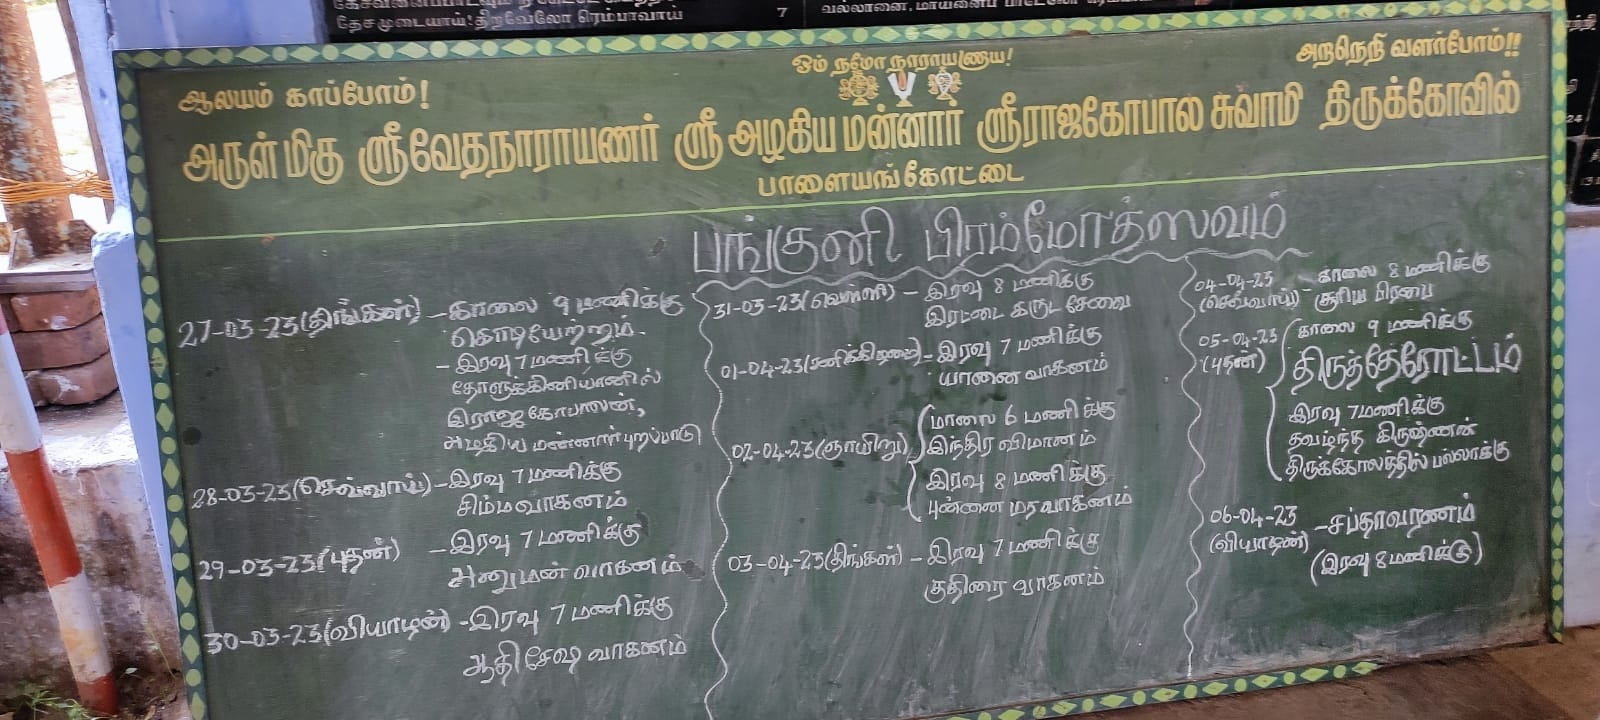 தேசமுடையாய்! திறவேலோ ரெம்பாவாய்
7
ஓம் நமோ நாராயணாய!
ஆலயம் காப்போம்!
அறநெறி வளர்போம்!!
அருள்மிகு ஸ்ரீவேதநாராயணர் ஸ்ரீ அழகிய மன்னார் ஸ்ரீராஜகோபால சுவாமி திருக்கோவில்
பாளையங்கோட்டை
பங்குனி பிரம்மோத்ஸவம்
27-03-23(திங்கள்) - காலை 9 மணிக்கு
கொடியேற்றம்.
- இரவு 7 மணிக்கு
தோளுக்கினியானில்
இராஜகோபாலன்,
அழகிய மன்னார் புறப்பாடு
28-03-23(செவ்வாய்) - இரவு 7 மணிக்கு
சிம்மவாகனம்
29-03-23(புதன்) - இரவு 7 மணிக்கு
அனுமன் வாகனம்
30-03-23(வியாழன்) - இரவு 7 மணிக்கு
ஆதிசேஷ வாகனம்
31-03-23(வெள்ளி) - இரவு 8 மணிக்கு
இரட்டை கருட சேவை
01-04-23(சனிக்கிழமை) - இரவு 7 மணிக்கு
யானை வாகனம்
மாலை 6 மணிக்கு
02-04-23(ஞாயிறு) இந்திர விமானம்
இரவு 8 மணிக்கு
புன்னை மரவாகனம்
03-04-23(திங்கள்) - இரவு 7 மணிக்கு
குதிரை வாகனம்
04-04-23 - காலை 8 மணிக்கு
(செவ்வாய்) சூரிய பிரபை
05-04-23 காலை 9 மணிக்கு
(புதன்) திருத்தேரோட்டம்
இரவு 7மணிக்கு
தவழ்ந்த கிருஷ்ணன்
திருக்கோலத்தில் பல்லாக்கு
06-04-23 - சப்தாவரணம்
(வியாழன்) (இரவு 8மணிக்கு)
24